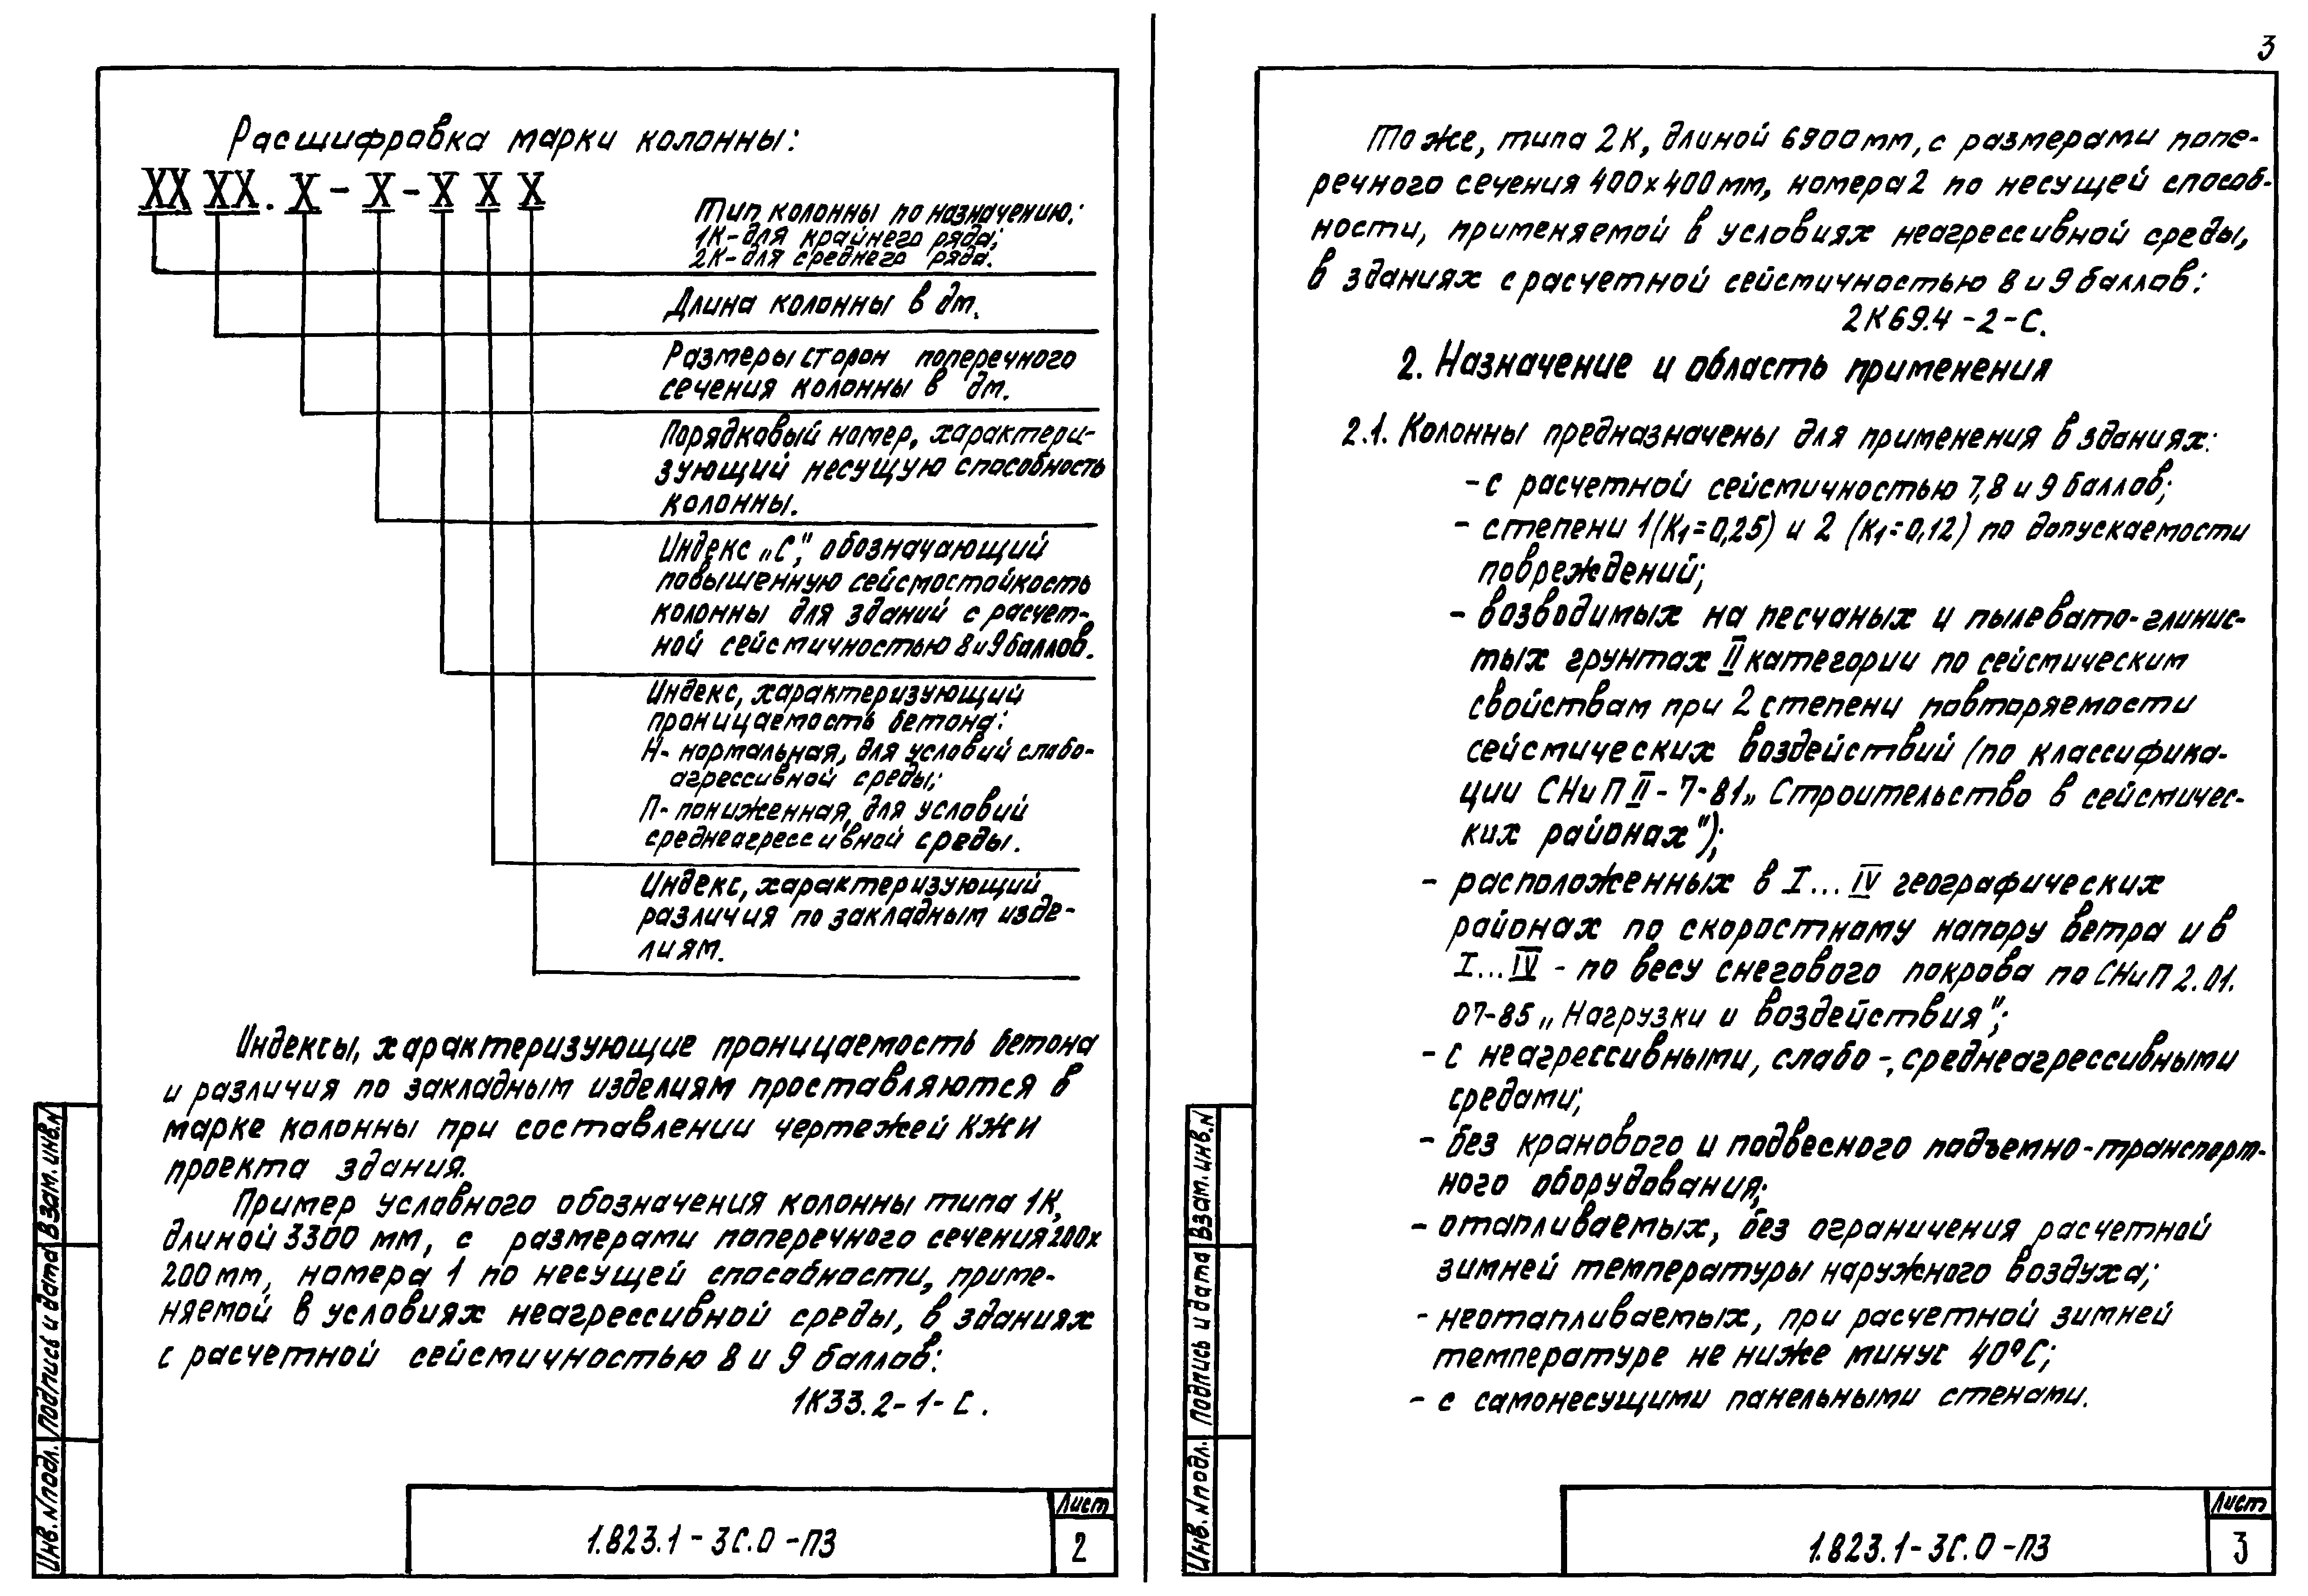 Расшифровка марки колонны:
XX XX. X - X - X X X
Тип колонны по назначению:
1К-для крайнего ряда;
2К-для среднего ряда.
Длина колонны в дм.
Размеры сторон поперечного
сечения колонны в дм.
Порядковый номер, характери-
зующий несущую способность
колонны.
Индекс „С", обозначающий
повышенную сейсмостойкость
колонны для зданий с расчет-
ной сейсмичностью 8 и 9 баллов.
Индекс, характеризующий
проницаемость бетона:
Н- нормальная, для условий слабо-
агрессивной среды;
П- пониженная, для условий
среднеагрессивной среды.
Индекс, характеризующий
различия по закладным изде-
лиям.
Индексы, характеризующие проницаемость бетона
и различия по закладным изделиям проставляются в
марке колонны при составлении чертежей КЖИ
проекта здания.
Пример условного обозначения колонны типа 1К,
длиной 3300 мм, с размерами поперечного сечения 200х
200мм, номера 1 по несущей способности, приме-
няемой в условиях неагрессивной среды, в зданиях
с расчетной сейсмичностью 8 и 9 баллов:
1К33.2-1-С.
Инв.№подл. Подпись и дата Взам.инв.№
1.823.1-3С.0-ПЗ
Лист
2
3
То же, типа 2К, длиной 6900мм, с размерами попе-
речного сечения 400х400мм, номера 2 по несущей способ-
ности, применяемой в условиях неагрессивной среды,
в зданиях с расчетной сейсмичностью 8 и 9 баллов:
2К69.4-2-С.
2. Назначение и область применения
2.1. Колонны предназначены для применения в зданиях:
- с расчетной сейсмичностью 7,8 и 9 баллов;
- степени 1(К1=0,25) и 2 (К1=0,12) по допускаемости
повреждений;
- возводимых на песчаных и пылевато-глинис-
тых грунтах II категории по сейсмическим
свойствам при 2 степени повторяемости
сейсмических воздействий (по классифика-
ции СНиП II-7-81„ Строительство в сейсмичес-
ких районах");
- расположенных в I...IV географических
районах по скоростному напору ветра и в
I...IV - по весу снегового покрова по СНиП 2.01.
07-85 „Нагрузки и воздействия";
- с неагрессивными, слабо-, среднеагрессивными
средами;
- без кранового и подвесного подъемно-транспорт-
ного оборудования;
- отапливаемых, без ограничения расчетной
зимней температуры наружного воздуха;
- неотапливаемых, при расчетной зимней
температуре не ниже минус 40°С;
- с самонесущими панельными стенами.
Инв.№подл. Подпись и дата Взам.инв.№
1.823.1-3С.0-ПЗ
Лист
3